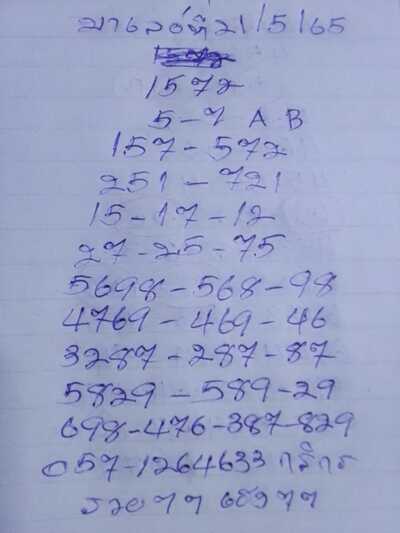 มาเลย์ที่ 21/5/65
1572
1572
5-7 A B
157-572
251-721
15-17-12
27-25-75
5698-568-98
4769-469-46
3287-287-87
5829-589-29
698-476-387-829
057-1264633
รวย ๆ ๆ เฮง ๆ ๆ